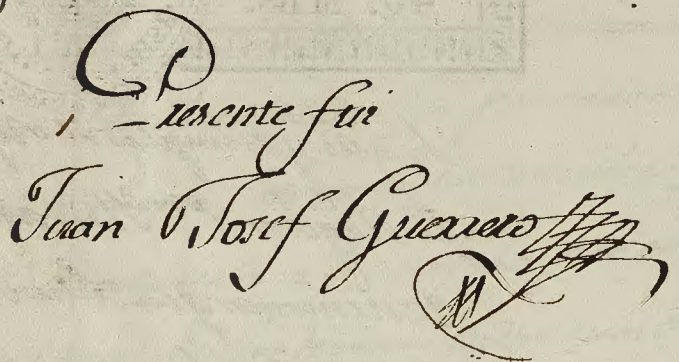 Presente fui
Juan Josef Guerrero